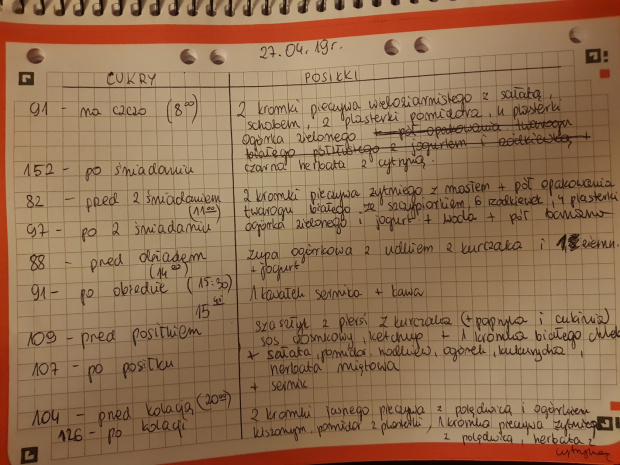 27.04.19r.
CUKRY POSIŁKI
91 - na czczo (8⁰⁰) 2 kromki pieczywa wieloziarnistego z sałatą,
schabem, 2 plasterki pomidora, 4 plasterki
ogórka zielonego + pół opakowania twarogu
białego półtłustego z jogurtem i rzodkiewką +
152 - po śniadaniu czarna herbata z cytryną.
82 - pred 2 śniadaniem 2 kromki pieczywa żytniego z masłem + pół opakowania
(11⁰⁰) twarogu białego ze szczypiorkiem, 6 rzodkiewek, 4 plasterki
97 - po 2 śniadaniu ogórka zielonego i jogurt + woda + pół banana
88 - pred obiadem zupa ogórkowa z udkiem z kurczaka i 1 ziemn.
(14⁰⁰) + jogurt
91 - po obiedzie (15:30) 1 kawałek sernika + kawa
15
109 - pred posiłkiem szaszłyk z piersi z kurczaka (+ papryka i cukinia)
sos czosnkowy, ketchup + 1 kromka białego chleba
107 - po posiłku + sałata, pomidor, ogórek, kukurydza,
herbata miętowa
+ sernik
104 - pred kolacją (20⁰⁰) 2 kromki jasnego pieczywa z polędwicą i ogórkiem
126 - po kolacji kiszonym, pomidor 2 plasterki, 1 kromka pieczywa żytniego
z polędwicą, herbata z
cytryną